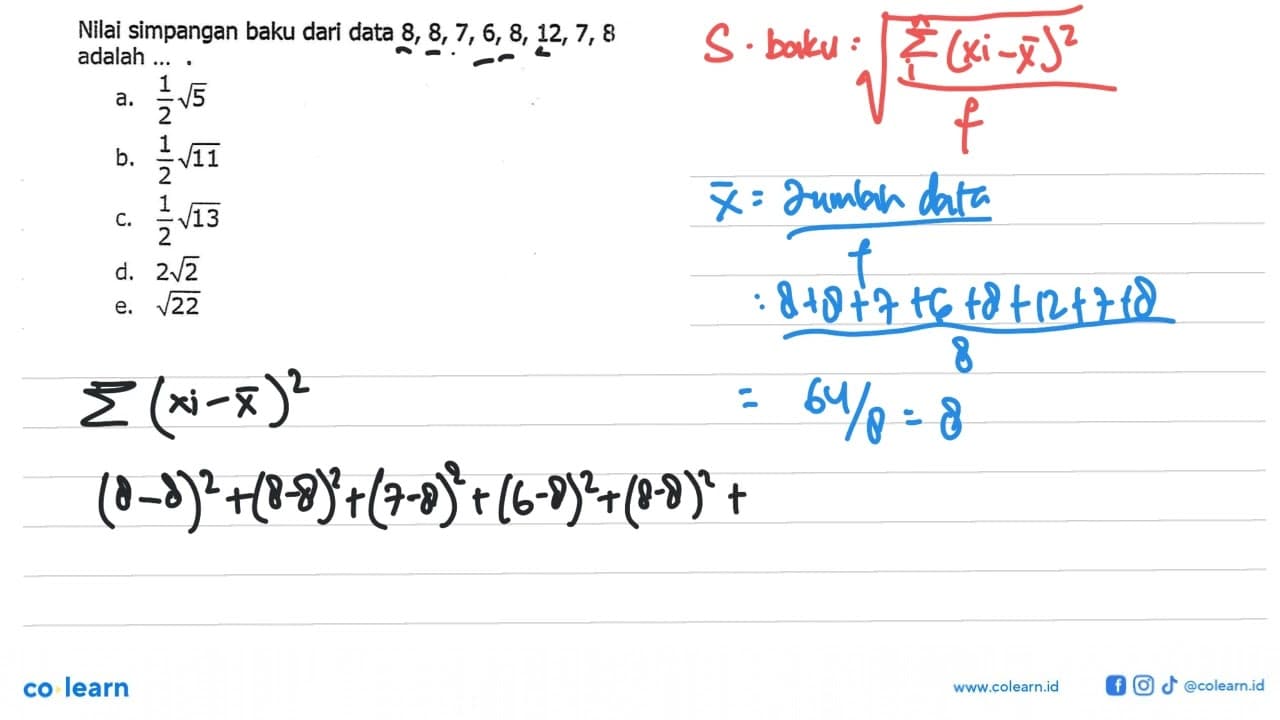 Nilai simpangan baku dari data 8, 8, 7, 6, 8, 12, 7, 8
adalah ... .
a. 1/2 √5
b. 1/2 √11
c. 1/2 √13
d. 2√2
e. √22
S. baku : √(Σ (xi - x̄)² / f)
n
i
x̄ = Jumlah data / f
: 8+8+7+6+8+12+7+8 / 8
= 64/8 = 8
Σ (xi - x̄)²
(8-8)² + (8-8)² + (7-8)² + (6-8)² + (8-8)² +
co learn
www.colearn.id
@colearn.id